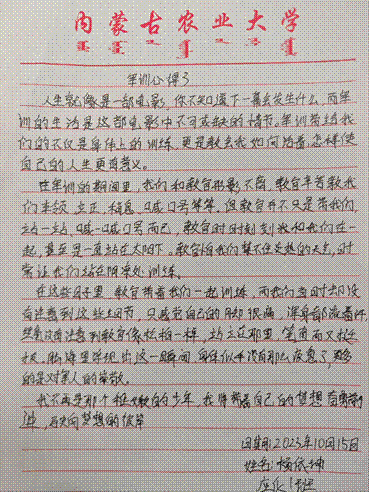 内蒙古农业大学
军训心得
人生就像是一部电影，你不知道下一幕会发生什么，而军
训的生活是这部电影中不可或缺的情节。军训带给我
们的不仅是身体上的训练，更是教会我如何活着，怎样使
自己的人生更有意义。
在军训的期间里，我们和教官形影不离，教官辛苦教我
们走领 立正，稍息，喊口号等等，但教官并不只是带我们
站一站，喊一喊口号而已，教官时时刻刻我和我们在一
起，甚至是一直站在太阳下，教官怕我们禁不住炎热的天气，时
常让我们站在阴凉处训练。
在这些日子里，教官带着我们一起训练，而我们当时却没
有注意到这些细节，只感觉自己的脚很痛，浑身都流着汗，
却没有注意到教官像松柏一样，站立在那里，笔直而又挺
拔，脑海里浮现出这一瞬间，身体似乎没有那么疲惫了，更多
的是对军人的崇敬。
我不再是那个稚嫩的少年，我将带着自己的梦想 奋勇前
进，迈向梦想的彼岸
日期：2023年10月15日
姓名：杨依坤